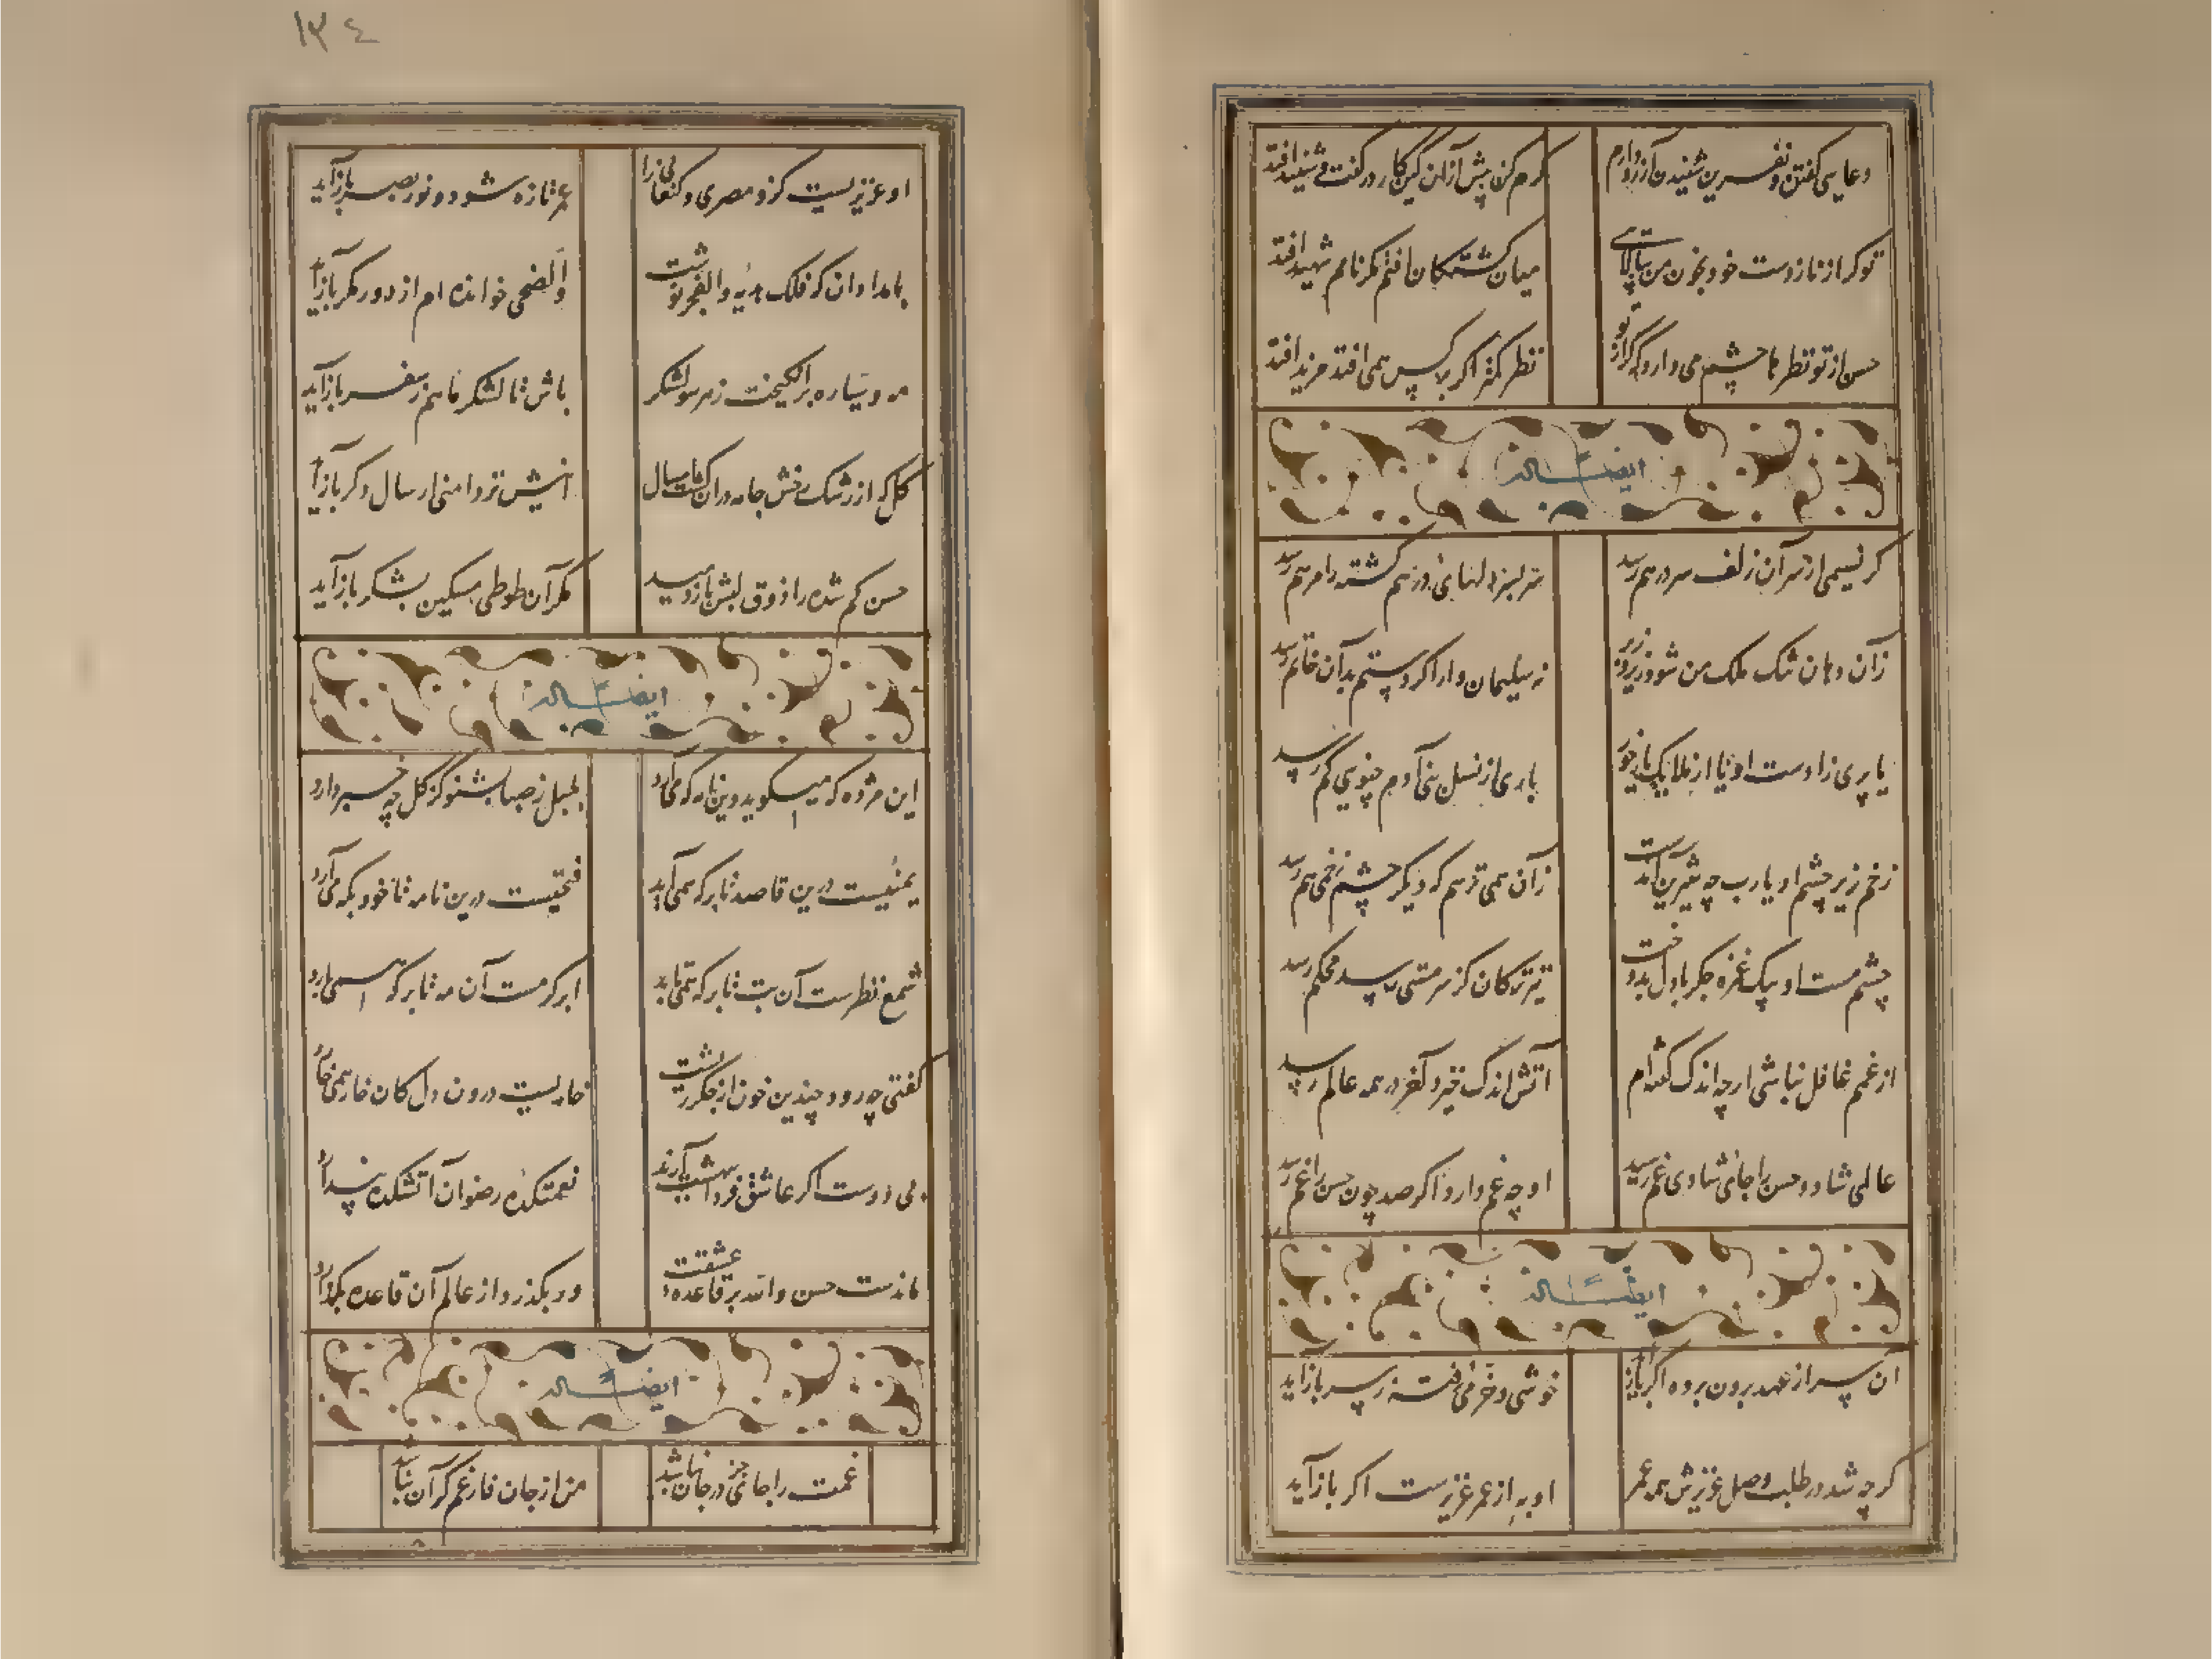 ١٣٤
دعایی گفتن و نفرین شنیدن آرزو دارم
کرم کن پیش ازان کین کار در گفت و شنید افتد
تو کر از ناز دست خود بخون من نیالایی
میان کشتگان افتم مگر نامم شهید افتد
حسن از تو نظرها چشم می دارد که از تو
نظر کمتر اگر بر کس همی افتد مزید افتد
ایضاً له
گر نسیمی از سر آن زلف سر درهم رسد
دلهای درهم گشته را مرهم رسد
زان دهان تنگ ملک من شود زیر و زبر
نه سلیمان وار اگر دستم بدان خاتم رسد
یا پری زادست او یا از ملایک یا ز حور
باری از نسل بنی آدم چنویی کم رسد
زخم زیر چشم او یارب چه شیرین آمدست
زان همی ترسم که دیگر چشم زخمی هم رسد
چشم مست او بیک غمزه جگر با دل بدوخت
تیر ترکان کز سر مستی رسد محکم رسد
از غم غافل نباشی ارچه اندک گفته ام
آتش اندک خیزد آنگه در همه عالم رسد
عالمی شاد و حسن را جای شادی غم رسید
او چه غم دارد اگر صد چون حسن را غم رسد
ایضاً له
آن پسر از عهد برون برده اگر باز آید
خوشی و خرمی رفته ز سر باز آید
گرچه شد در طلب وصل عزیزش همه عمر
او به از عمر عزیزست اگر باز آید
او عزیزیست کزو مصری و کنعانی را
عمر تازه شود و نور بصر باز آید
بامدادان که فلک آیه والفجر نوشت
والضحی خوانده ام از دور مگر باز آید
مه و سیاره برانگیخت ز هر سو لشکر
باش تا لشکر ما هم ز سفر باز آید
گل که از رشک رخش جامه دران گشت امسال
تردامنی ار سال دگر باز آید
حسن گم شده را ذوق لبش باز دمید
مگر آن طوطی مسکین بشکر باز آید
ایضاً له
این مژده که میگوید وین نامه که می آرد
بلبل ز صبا بشنو کز گل چه خبر دارد
یمنیست درین قاصد تا بر که همی آید
فتحیست درین نامه تا خود بکه می آرد
شمع نظرست آن بت تا بر که همی تابد
ابر کرمست آن مه تا بر که همی بارد
گفتی چه رود چندین خون از جگر ریشت
خاریست درون دل کان خار همی خارد
بی دوست اگر عاشق فردا به بهشت آرند
نعمتکده رضوان آتشکده پندارد
ماندست حسن والله بر قاعده عشقت
ور بگذرد از عالم آن قاعده بگذارد
ایضاً له
غمت را جای جز در جان نباشد
من از جان فارغم گر آن نباشد